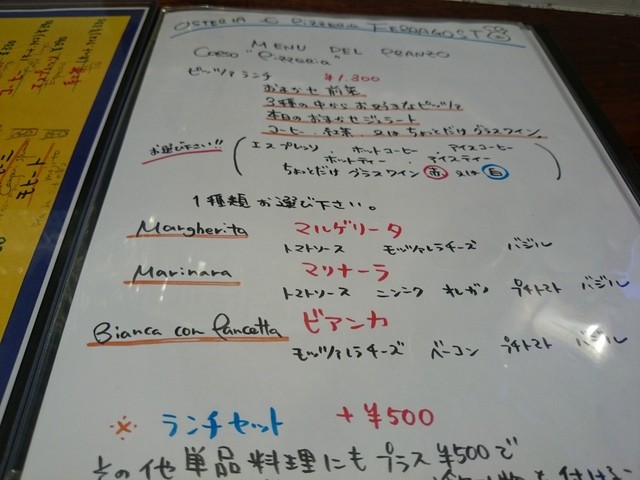 OSTERIA e PIZZERIA FERRAGOSTO
MENU DEL PRANZO
Corso "Pizzeria"
ピッツァランチ ¥1.300
おまかせ前菜
3種の中からお好きなピッツァ
本日のおまかせジェラート
コーヒー・紅茶 又は ちょっとだけグラスワイン
お選び下さい!!
エスプレッソ ・ホットコーヒー ・アイスコーヒー
・ホットティー ・アイスティー
ちょっとだけグラスワイン 赤 又は 白
1種類お選び下さい。
Margherita マルゲリータ
トマトソース モッツァレラチーズ バジル
Marinara マリナーラ
トマトソース ニンニク オレガノ プチトマト バジル
Bianca con Pancetta ビアンカ
モッツァレラチーズ ベーコン プチトマト バジル
※ ランチセット +¥500
その他単品料理にもプラス¥500で